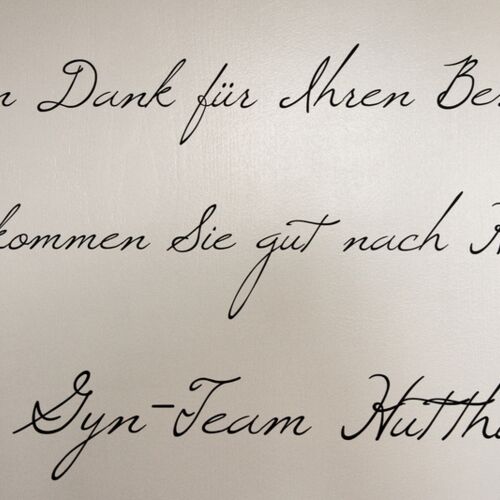 n Dank für Ihren Be
kommen Sie gut nach H
Gyn-Team Hutth